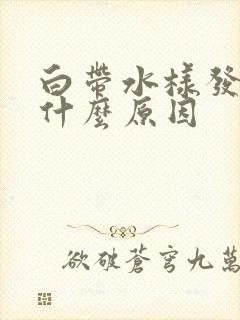 白帶水樣發
什麼原因
欲破蒼穹九萬